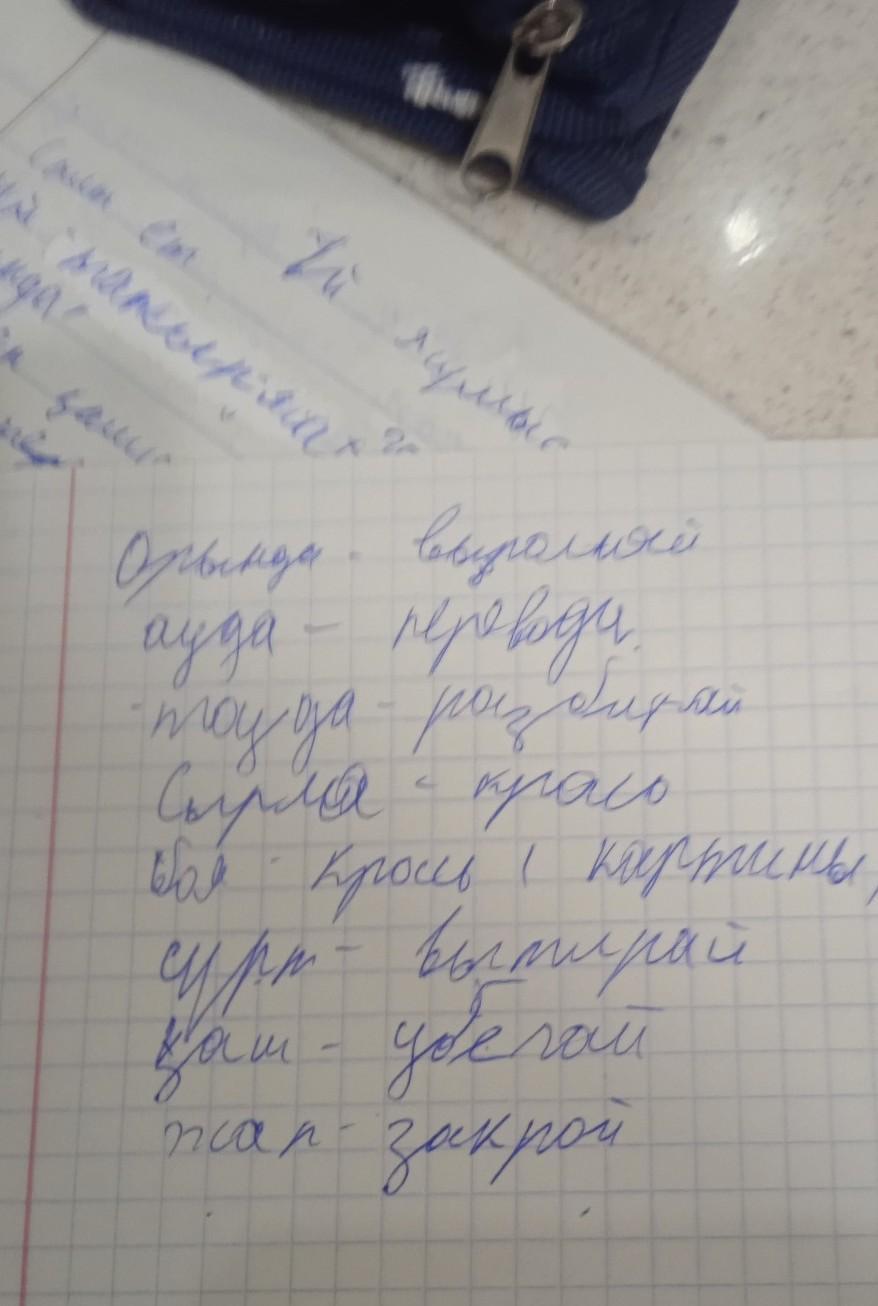 Үй жұмыс
Орында - выполняй
ауда - переводи
тоңда - разбирай
Сырла - крась
боя - крась ( картины,
сүрт - вытирай
қаш - убегай
жап - закрой